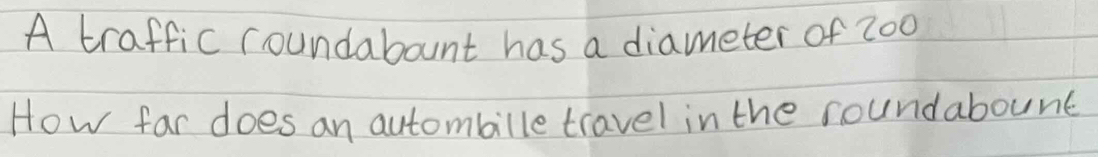 A traffic roundabount has a diameter of 200
How far does an autombille travel in the roundabount